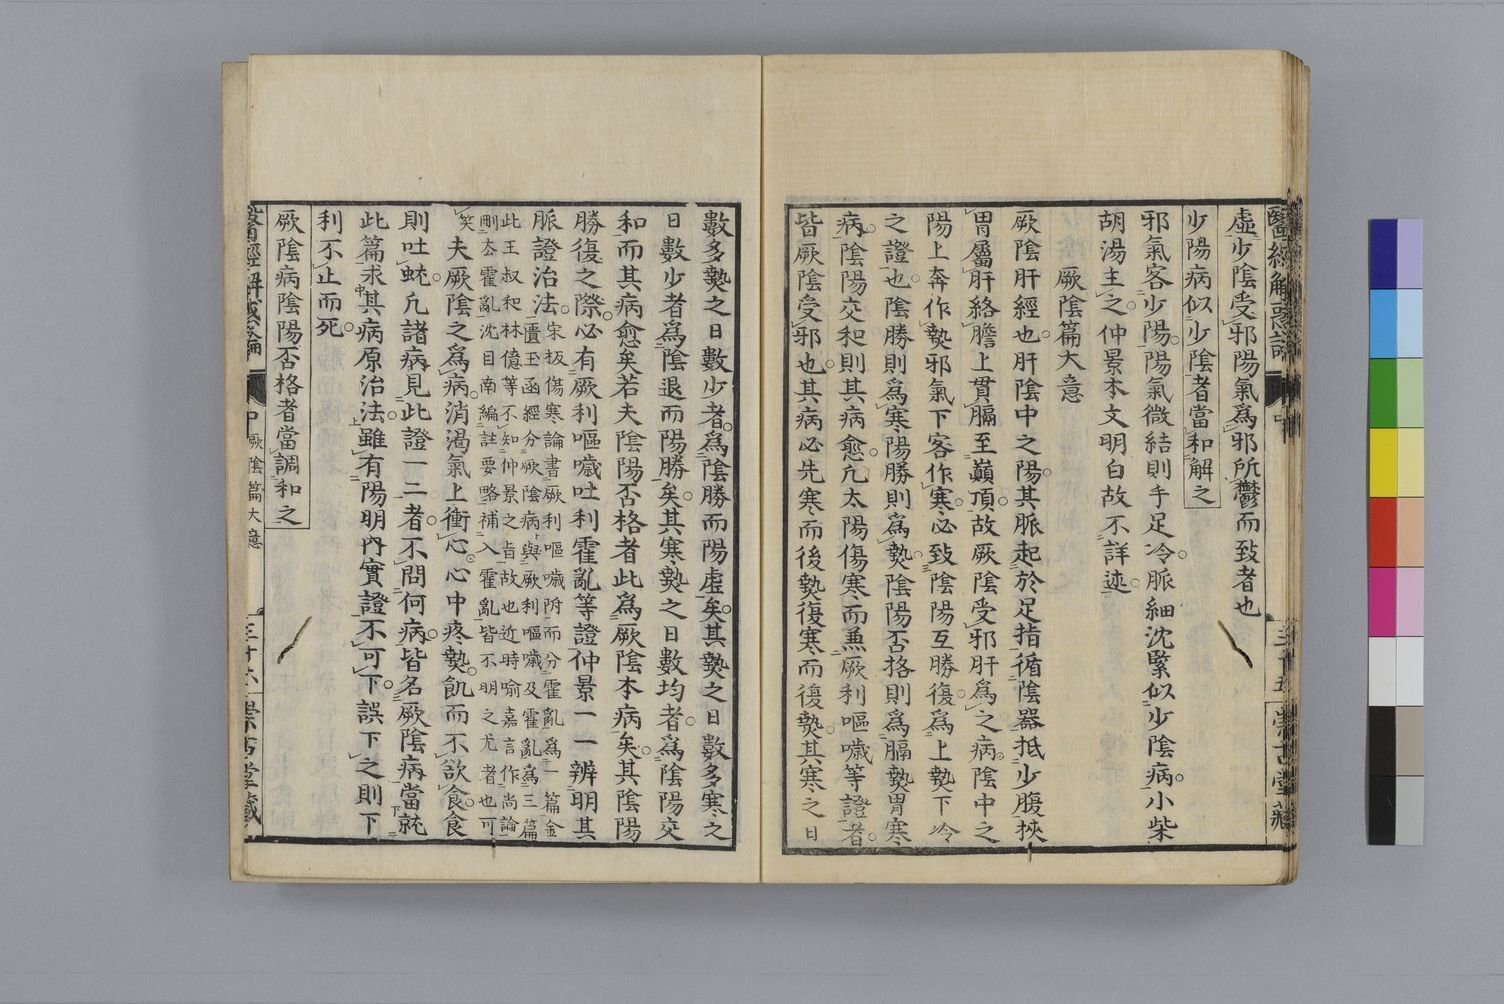 虛少陰受邪陽氣爲邪所鬱而致者也
少陽病似少陰者當和解之
邪氣客少陽陽氣微結則手足冷脈細沈緊似少陰病小柴
胡湯主之仲景本文明白故不詳述
厥陰篇大意
厥陰肝經也肝陰中之陽其脈起於足指循陰器抵少腹挾
胃屬肝絡膽上貫膈至巔頂故厥陰受邪肝爲之病陰中之
陽上奔作熱邪氣下客作寒必致陰陽互勝復爲上熱下冷
之證也陰勝則爲寒陽勝則爲熱陰陽否格則爲膈熱胃寒
病陰陽交和則其病愈凡太陽傷寒而兼厥利嘔噦等證者
皆厥陰受邪也其病必先寒而後熱復寒而復熱其寒之日
數多熱之日數少者爲陰勝而陽虛矣其熱之日數多寒之
日數少者爲陰退而陽勝矣其寒熱之日數均者爲陰陽交
和而其病愈矣若夫陰陽否格者此爲厥陰本病矣其陰陽
勝復之際必有厥利嘔噦吐利霍亂等證仲景一一辨明其
脈證治法宋板傷寒論書厥利嘔噦附而分霍亂爲一篇金
匱玉函經分厥陰病與厥利嘔噦及霍亂爲三篇
此王叔和林億等不知仲景之旨故也近時喻嘉言作尚論
刪去霍亂沈目南編註要略補入霍亂皆不明之尤者也可
笑夫厥陰之爲病消渴氣上衝心心中疼熱飢而不欲食食
則吐蚘凡諸病見此證一二者不問何病皆名厥陰病當就
此篇求其病原治法雖有陽明內實證不可下誤下之則下
利不止而死
厥陰病陰陽否格者當調和之
醫經解惑論
中
厥陰篇大意
三十六
崇古堂藏